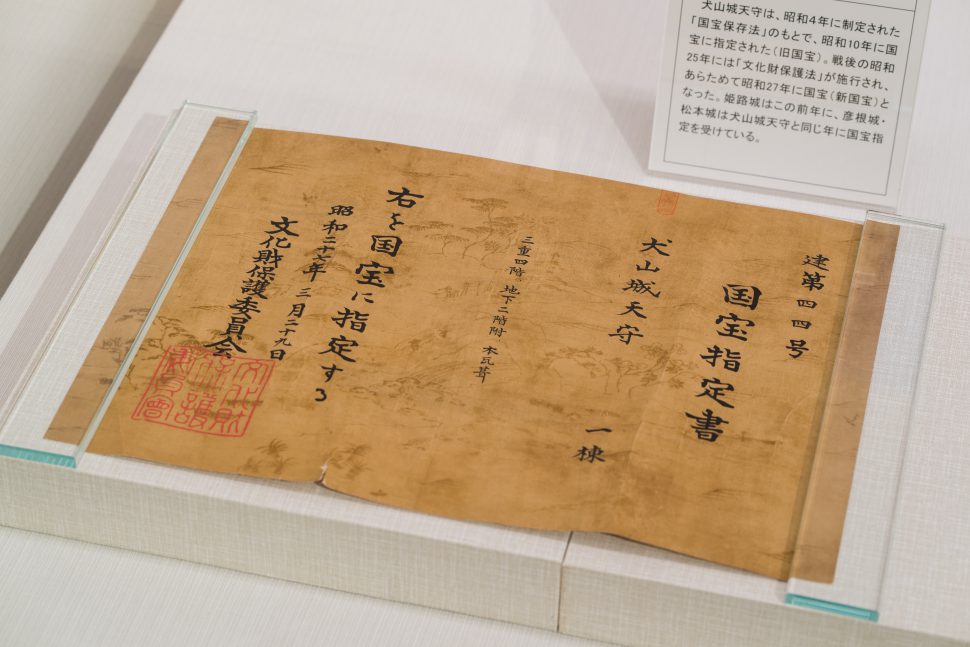 犬山城天守は、昭和4年に制定された
「国宝保存法」のもとで、昭和10年に国
宝に指定された(旧国宝)。戦後の昭和
25年には「文化財保護法」が施行され、
あらためて昭和27年に国宝(新国宝)と
なった。姫路城はこの前年に、彦根城・
松本城は犬山城天守と同じ年に国宝指
定を受けている。
建第四四号
国宝指定書
犬山城天守
一棟
三重四階、地下二階附 本瓦葺
右を国宝に指定する
昭和二十七年三月二十九日
文化財保護委員会
文化財
保護
委員會